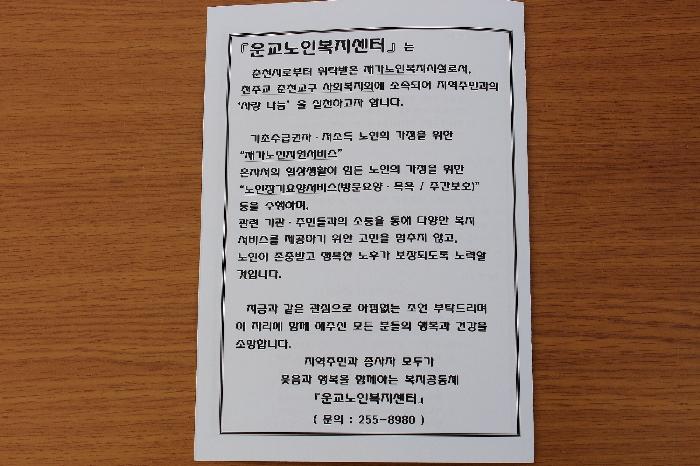 『운교노인복지센터』는
춘천시로부터 위탁받은 재가노인복지시설로서,
천주교 춘천교구 사회복지회에 소속되어 지역주민과의
'사랑 나눔' 을 실천하고자 합니다.
기초수급권자·저소득 노인의 가정을 위한
"재가노인지원서비스"
혼자서의 일상생활이 힘든 노인의 가정을 위한
"노인장기요양서비스(방문요양·목욕 / 주간보호)"
등을 수행하며,
관련 기관·주민들과의 소통을 통해 다양한 복지
서비스를 제공하기 위한 고민을 멈추지 않고,
노인이 존중받고 행복한 노후가 보장되도록 노력할
것입니다.
지금과 같은 관심으로 아낌없는 조언 부탁드리며
이 자리에 함께 해주신 모든 분들의 행복과 건강을
소망합니다.
지역주민과 종사자 모두가
웃음과 행복을 함께하는 복지공동체
『운교노인복지센터』
( 문의 : 255-8980 )